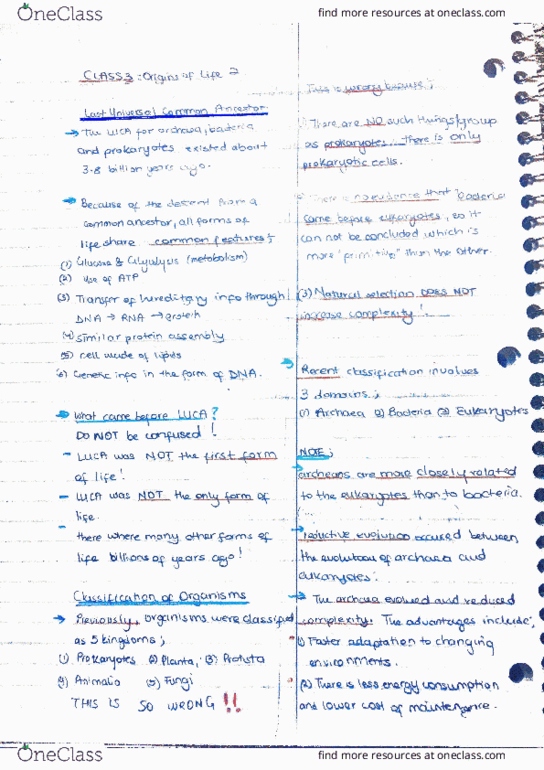 OneClass
find more resources at oneclass.com
CLASS 3 : Origins of Life 2
Last Universal Common Ancestor
→ The LUCA for archaea, bacteria
and prokaryotes existed about
3.8 billion years ago.
→ Because of the descent from a
common ancestor, all forms of
life share common features;
(1) Glucose & Glycolysis (metabolism)
(2) Use of ATP
(3) Transfer of hereditary info through
DNA → RNA → protein
(4) similar protein assembly
(5) cell made of lipids
(6) Genetic info in the form of DNA.
→ What came before LUCA?
DO NOT be confused !
- LUCA was NOT the first form
of life!
- LUCA was NOT the only form of
life.
- there where many other forms of
life billions of years ago!
Classification of Organisms
→ Previously, organisms were classified
as 5 kingdoms;
(1) Prokaryotes (2) Planta, (3) Protista
(4) Animalia (5) Fungi
THIS IS SO WRONG !!
This is wrong because ;
There are NO such things/group
as prokaryotes... there is only
prokaryotic cells.
There is no evidence that bacteria
came before eukaryotes, so it
can not be concluded which is
more "primitive" than the other.
(3) Natural selection DOES NOT
increase complexity !
→ Recent classification involves
3 domains ;
(1) Archaea (2) Bacteria (3) Eukaryotes
NOTE ;
→ archeans are more closely related
to the eukaryotes than to bacteria.
→ reductive evolution occused between
the evolution of archaea and
eukaryotes:
→ The archaea evolved and reduced
complexity. The advantages include;
(1) Faster adaptation to changing
environments.
(2) There is less energy consumption
and lower cost of maintenance.
OneClass
find more resources at oneclass.com